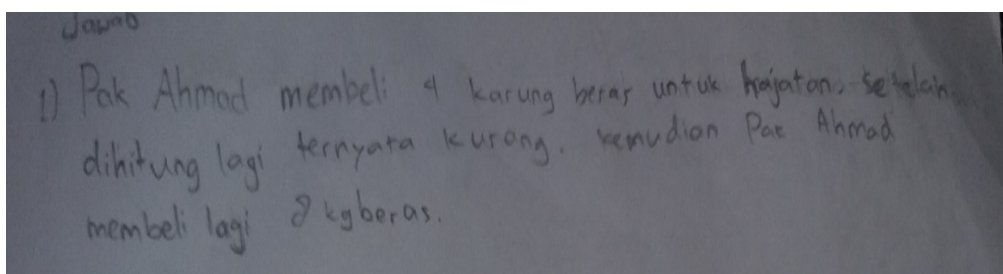 Jawab
1) Pak Ahmad membeli 4 karung beras untuk hajatan, setelah
dihitung lagi ternyata kurang. kemudian Pak Ahmad
membeli lagi 8 kg beras.